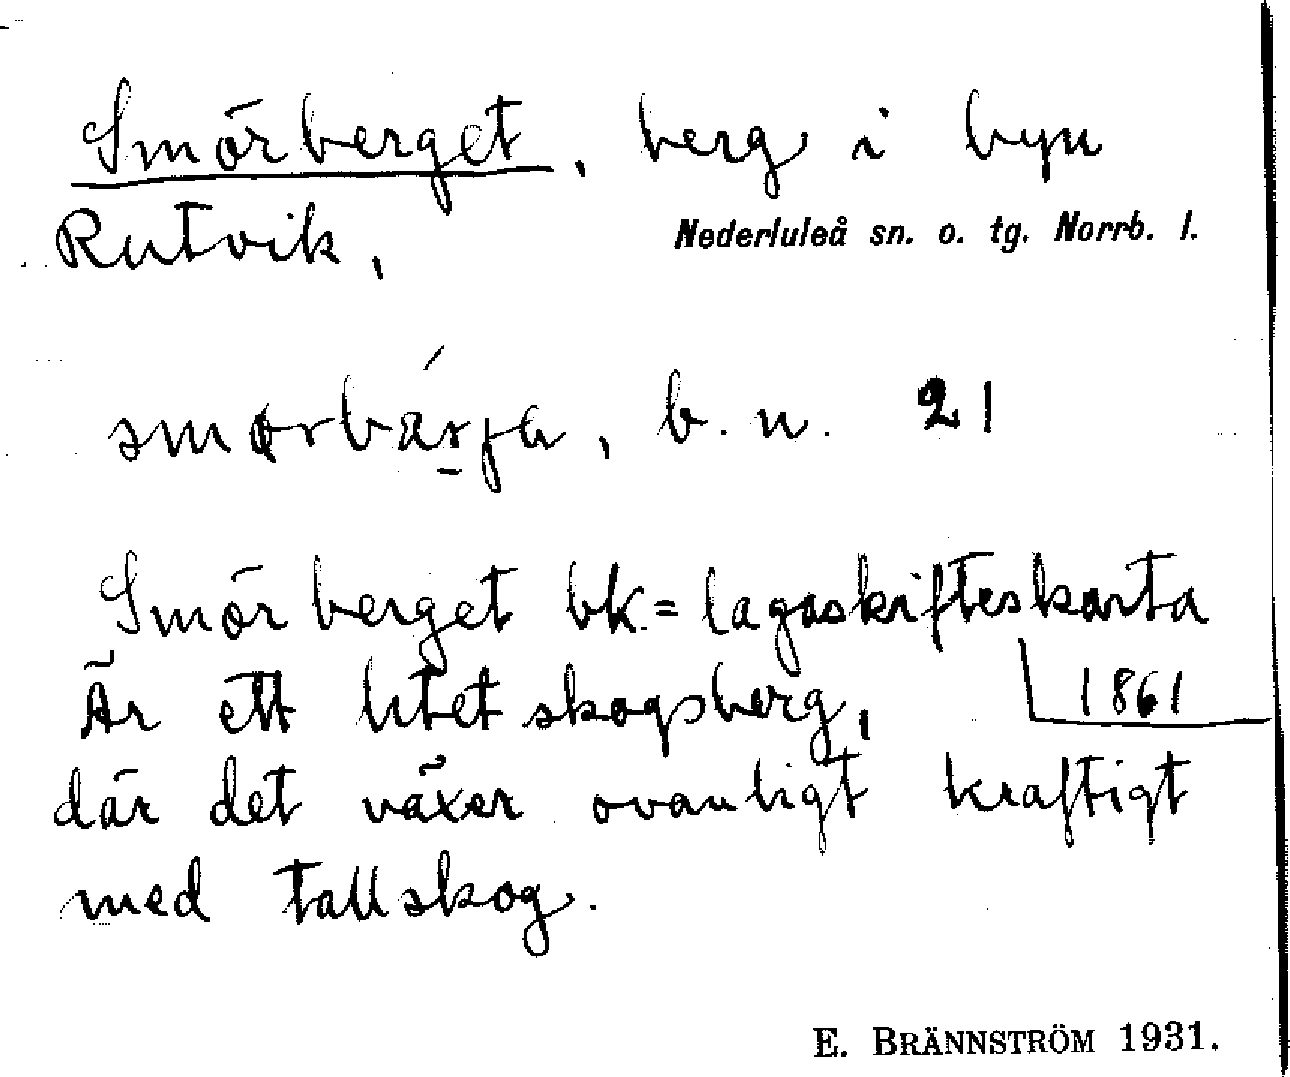 Smörberget, berg i byn
Rutvik, Nederluleå sn. o. tg. Norrb. l.
b. n. 21
Smörberget bk. = lagaskifteskarta
1861
Är ett litet skogsberg,
där det växer ovanligt kraftigt
med tallskog.
E. BRÄNNSTRÖM 1931.